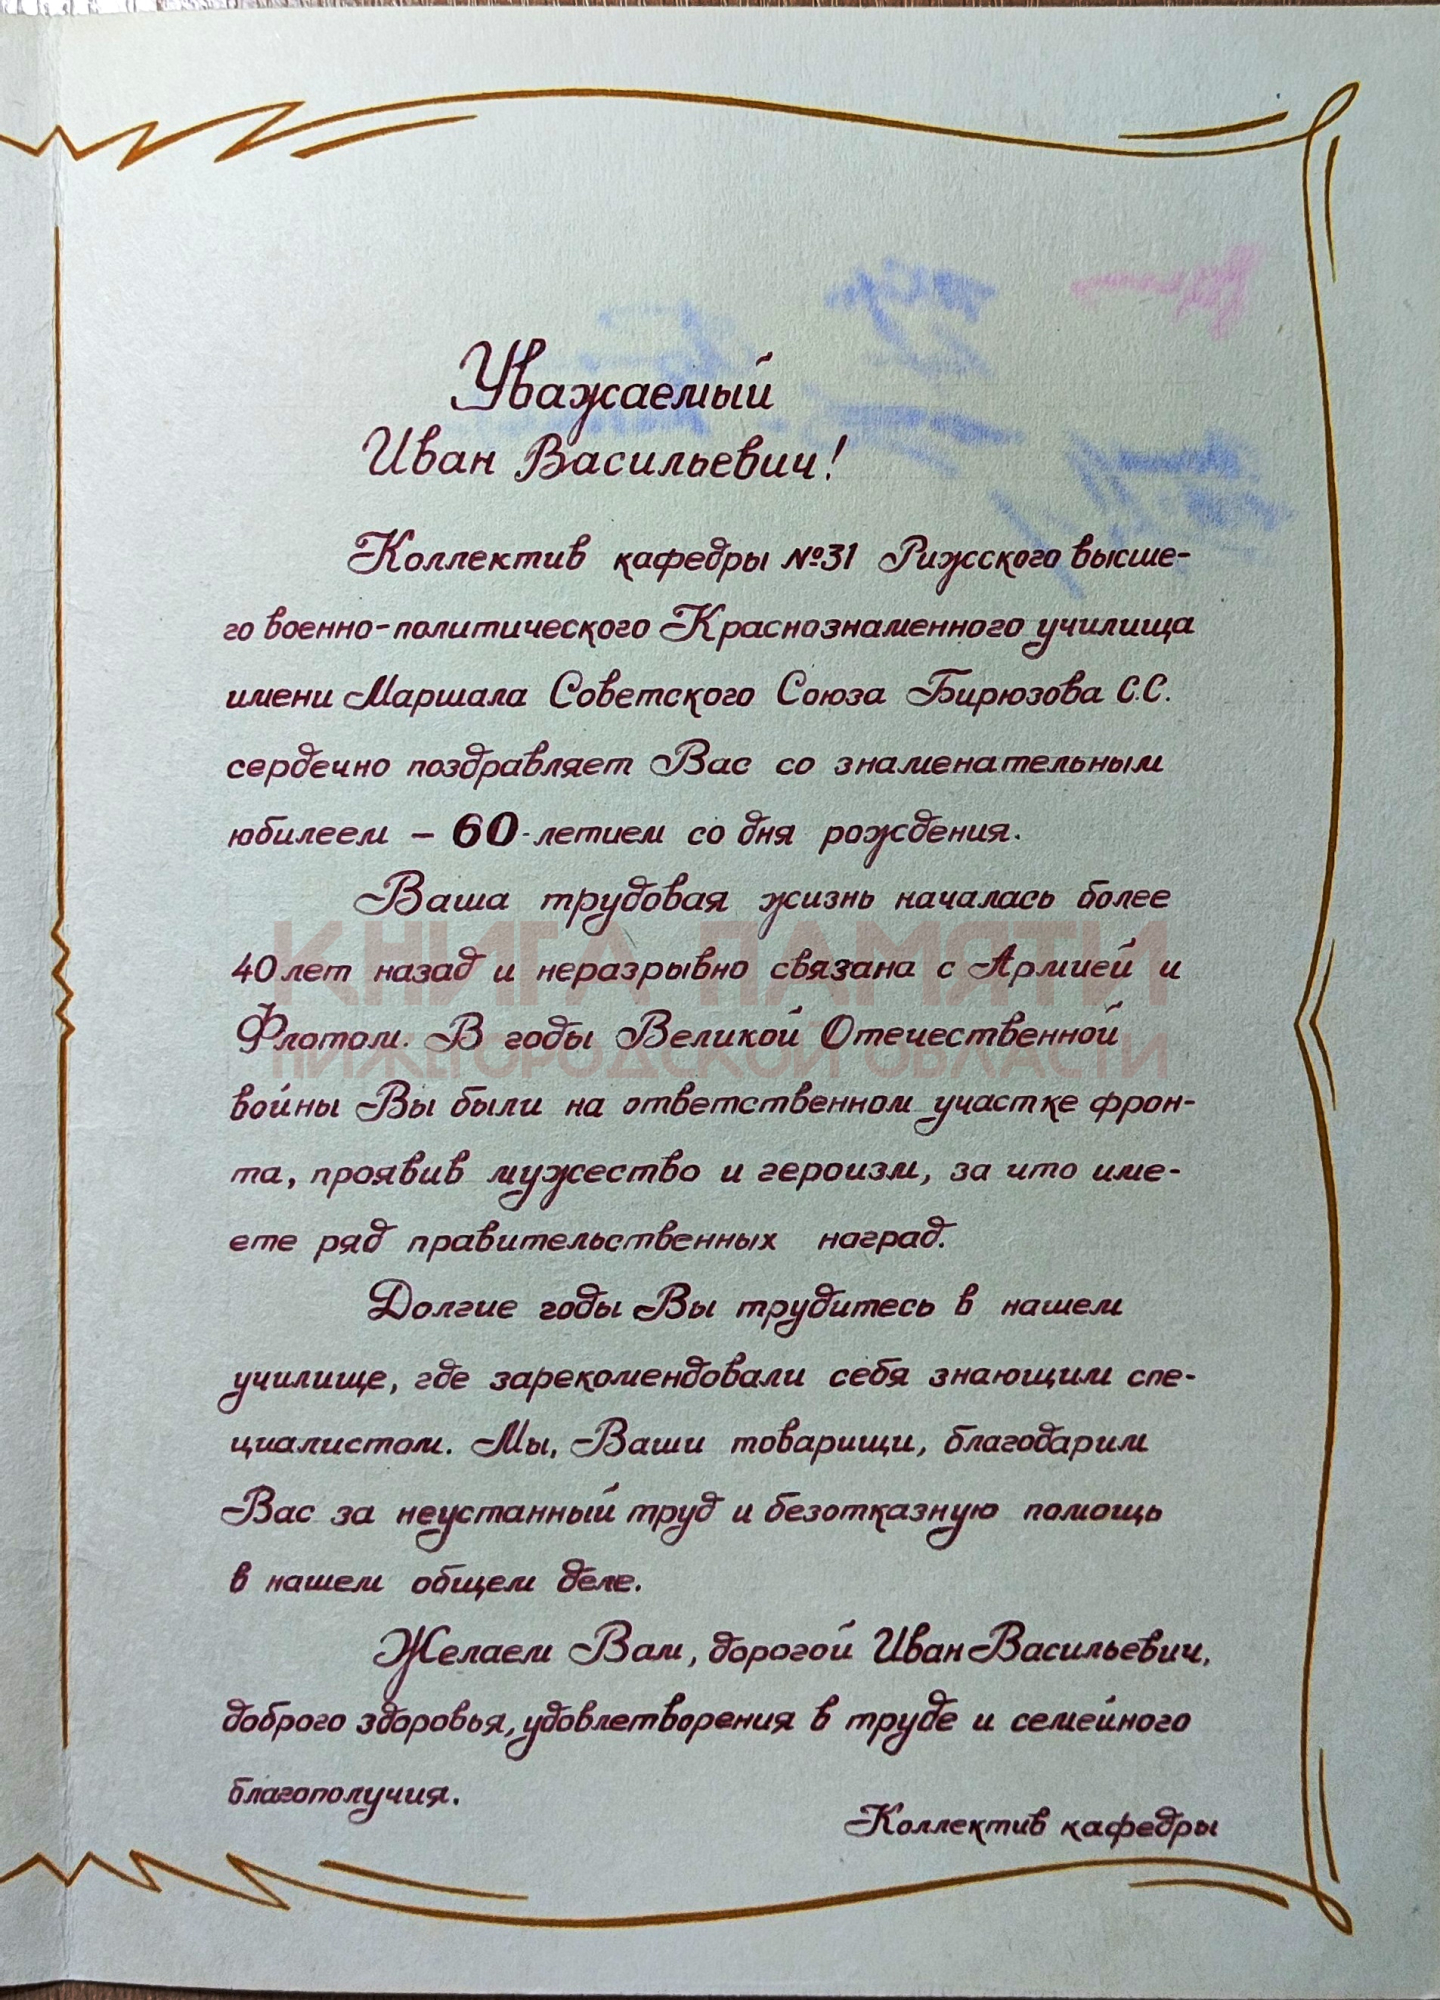 Уважаемый
Иван Васильевич!
Коллектив кафедры №31 Рижского высше-
го военно-политического Краснознаменного училища
имени Маршала Советского Союза Бирюзова С.С.
сердечно поздравляет Вас со знаменательным
юбилеем – 60-летием со дня рождения.
Ваша трудовая жизнь началась более
40 лет назад и неразрывно связана с Армией и
Флотом. В годы Великой Отечественной
войны Вы были на ответственном участке фрон-
та, проявив мужество и героизм, за что име-
ете ряд правительственных наград.
Долгие годы Вы трудитесь в нашем
училище, где зарекомендовали себя знающим спе-
циалистом. Мы, Ваши товарищи, благодарим
Вас за неустанный труд и безотказную помощь
в нашем общем деле.
Желаем Вам, дорогой Иван Васильевич,
доброго здоровья, удовлетворения в труде и семейного
благополучия.
Коллектив кафедры
КНИГА ПАМЯТИ
НИЖЕГОРОДСКОЙ ОБЛАСТИ